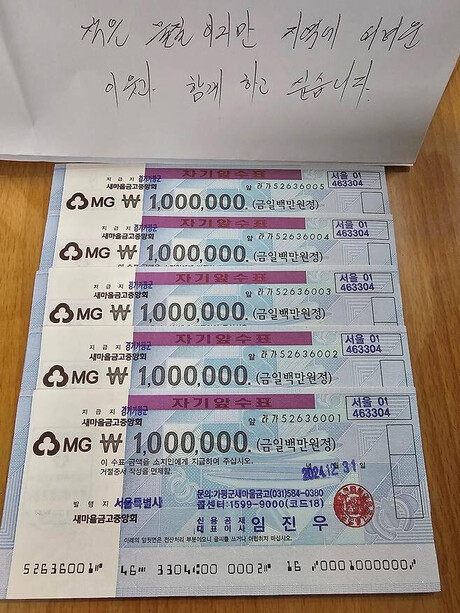 작은 물질이지만 지역에 어려운
이웃과 함께 하고 싶습니다.
자기앞수표
지급지 경기가평군
새마을금고중앙회
앞 라가52636005
서울 01
463304
MG ₩ 1,000,000. (금일백만원정)
자기앞수표
지급지 경기가평군
새마을금고중앙회
앞 라가52636004
서울 01
463304
MG ₩ 1,000,000. (금일백만원정)
자기앞수표
지급지 경기가평군
새마을금고중앙회
앞 라가52636003
서울 01
463304
MG ₩ 1,000,000. (금일백만원정)
자기앞수표
지급지 경기가평군
새마을금고중앙회
앞 라가52636002
서울 01
463304
MG ₩ 1,000,000. (금일백만원정)
자기앞수표
지급지 경기가평군
새마을금고중앙회
앞 라가52636001
서울 01
463304
MG ₩ 1,000,000. (금일백만원정)
이 수표 금액을 소지인에게 지급하여 주십시오.
거절증서 작성을 면제함.
2024.12.31일
발행지 서울특별시
문의:가평군새마을금고(031)584-0380
콜센터:1599-9000(코드18)
신용공제
대표이사 임진우
아래의 앞뒷면은 전산처리 부분이오니 글씨를 쓰거나 더럽히지 마십시오.
52636001 46 3304 000 0002 16 0001000000